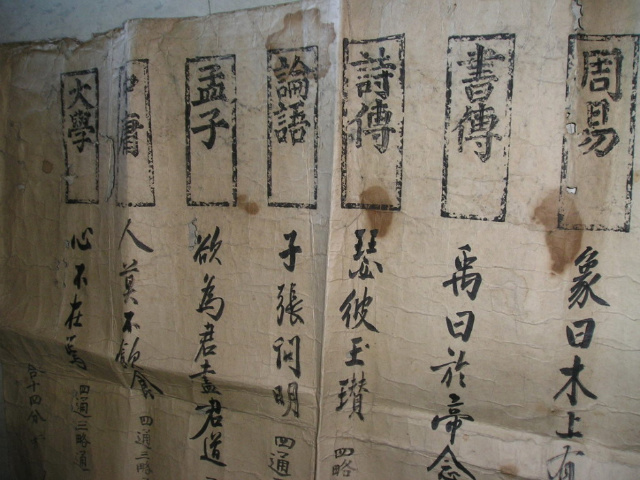 周易
象曰木上有
書傳
禹曰於帝念
詩傳
瑟彼玉瓚 四略
論語
子張問明 四通
孟子
欲為君盡君道
中庸
人莫不飮食 四通三略
大學
心不在焉 四通三略通
十四分